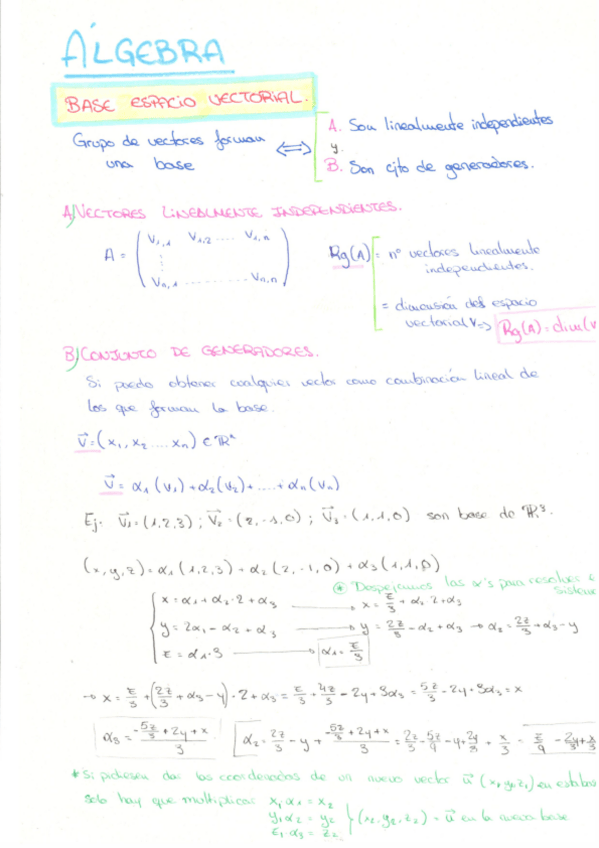 ÁLGEBRA
BASE ESPACIO VECTORIAL.
Grupo de vectores forman una base ⟺
A. Son linealmente independientes
y
B. Son cjto de generadores.
A) VECTORES LINEALMENTE INDEPENDIENTES.
A = ( V1,1 V1,2 .... V1,n
⋮
Vn,1 .......... Vn,n )
Rg(A) = nº vectores linealmente
independientes.
= dimensión del espacio
vectorial V => Rg(A) = dim(V
B) CONJUNTO DE GENERADORES.
Si puedo obtener cualquier vector como combinación lineal de
los que forman la base.
V⃗ = (x1, x2 .... xn) ∈ ℝⁿ
V⃗ = α1 (V1) + α2 (V2) + .... + αn (Vn)
Ej. V⃗1 = (1,2,3) ; V⃗2 = (2,-1,0) ; V⃗3 = (1,1,0) son base de ℝ³.
(x,y,z) = α1 (1,2,3) + α2 (2,-1,0) + α3 (1,1,0)
* Despejamos las α's para resolver e
sistema
x = α1 + α2 · 2 + α3 → x = z/3 + α2 · 2 + α3
y = 2α1 - α2 + α3 → y = 2z/3 - α2 + α3 → α2 = 2z/3 + α3 - y
z = α1 · 3 → α1 = z/3
→ x = z/3 + (2z/3 + α3 - y) · 2 + α3 = z/3 + 4z/3 - 2y + 3α3 = 5z/3 - 2y + 3α3 = x
α3 = (-5z/3 + 2y + x)/3
α2 = 2z/3 - y + (-5z/3 + 2y + x)/3 = 2z/3 - 5z/9 - y + 2y/3 + x/3 =
* Si pidiesen dar las coordenadas de un nuevo vector u⃗ (x1,y1,z1) en esta base
solo hay que multiplicar x1 α1 = x2
y1 α2 = y2
z1 α3 = z2
(x2, y2, z2) = u⃗ en la nueva base